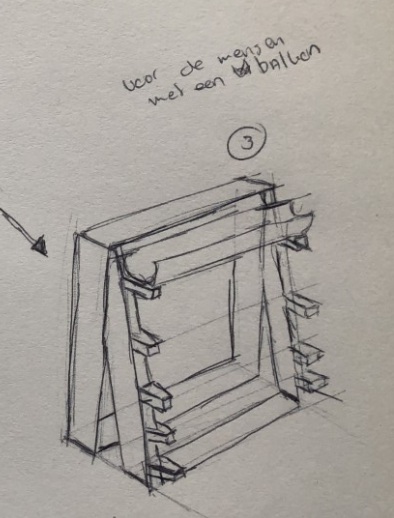 voor de mensen
met een balkon
3